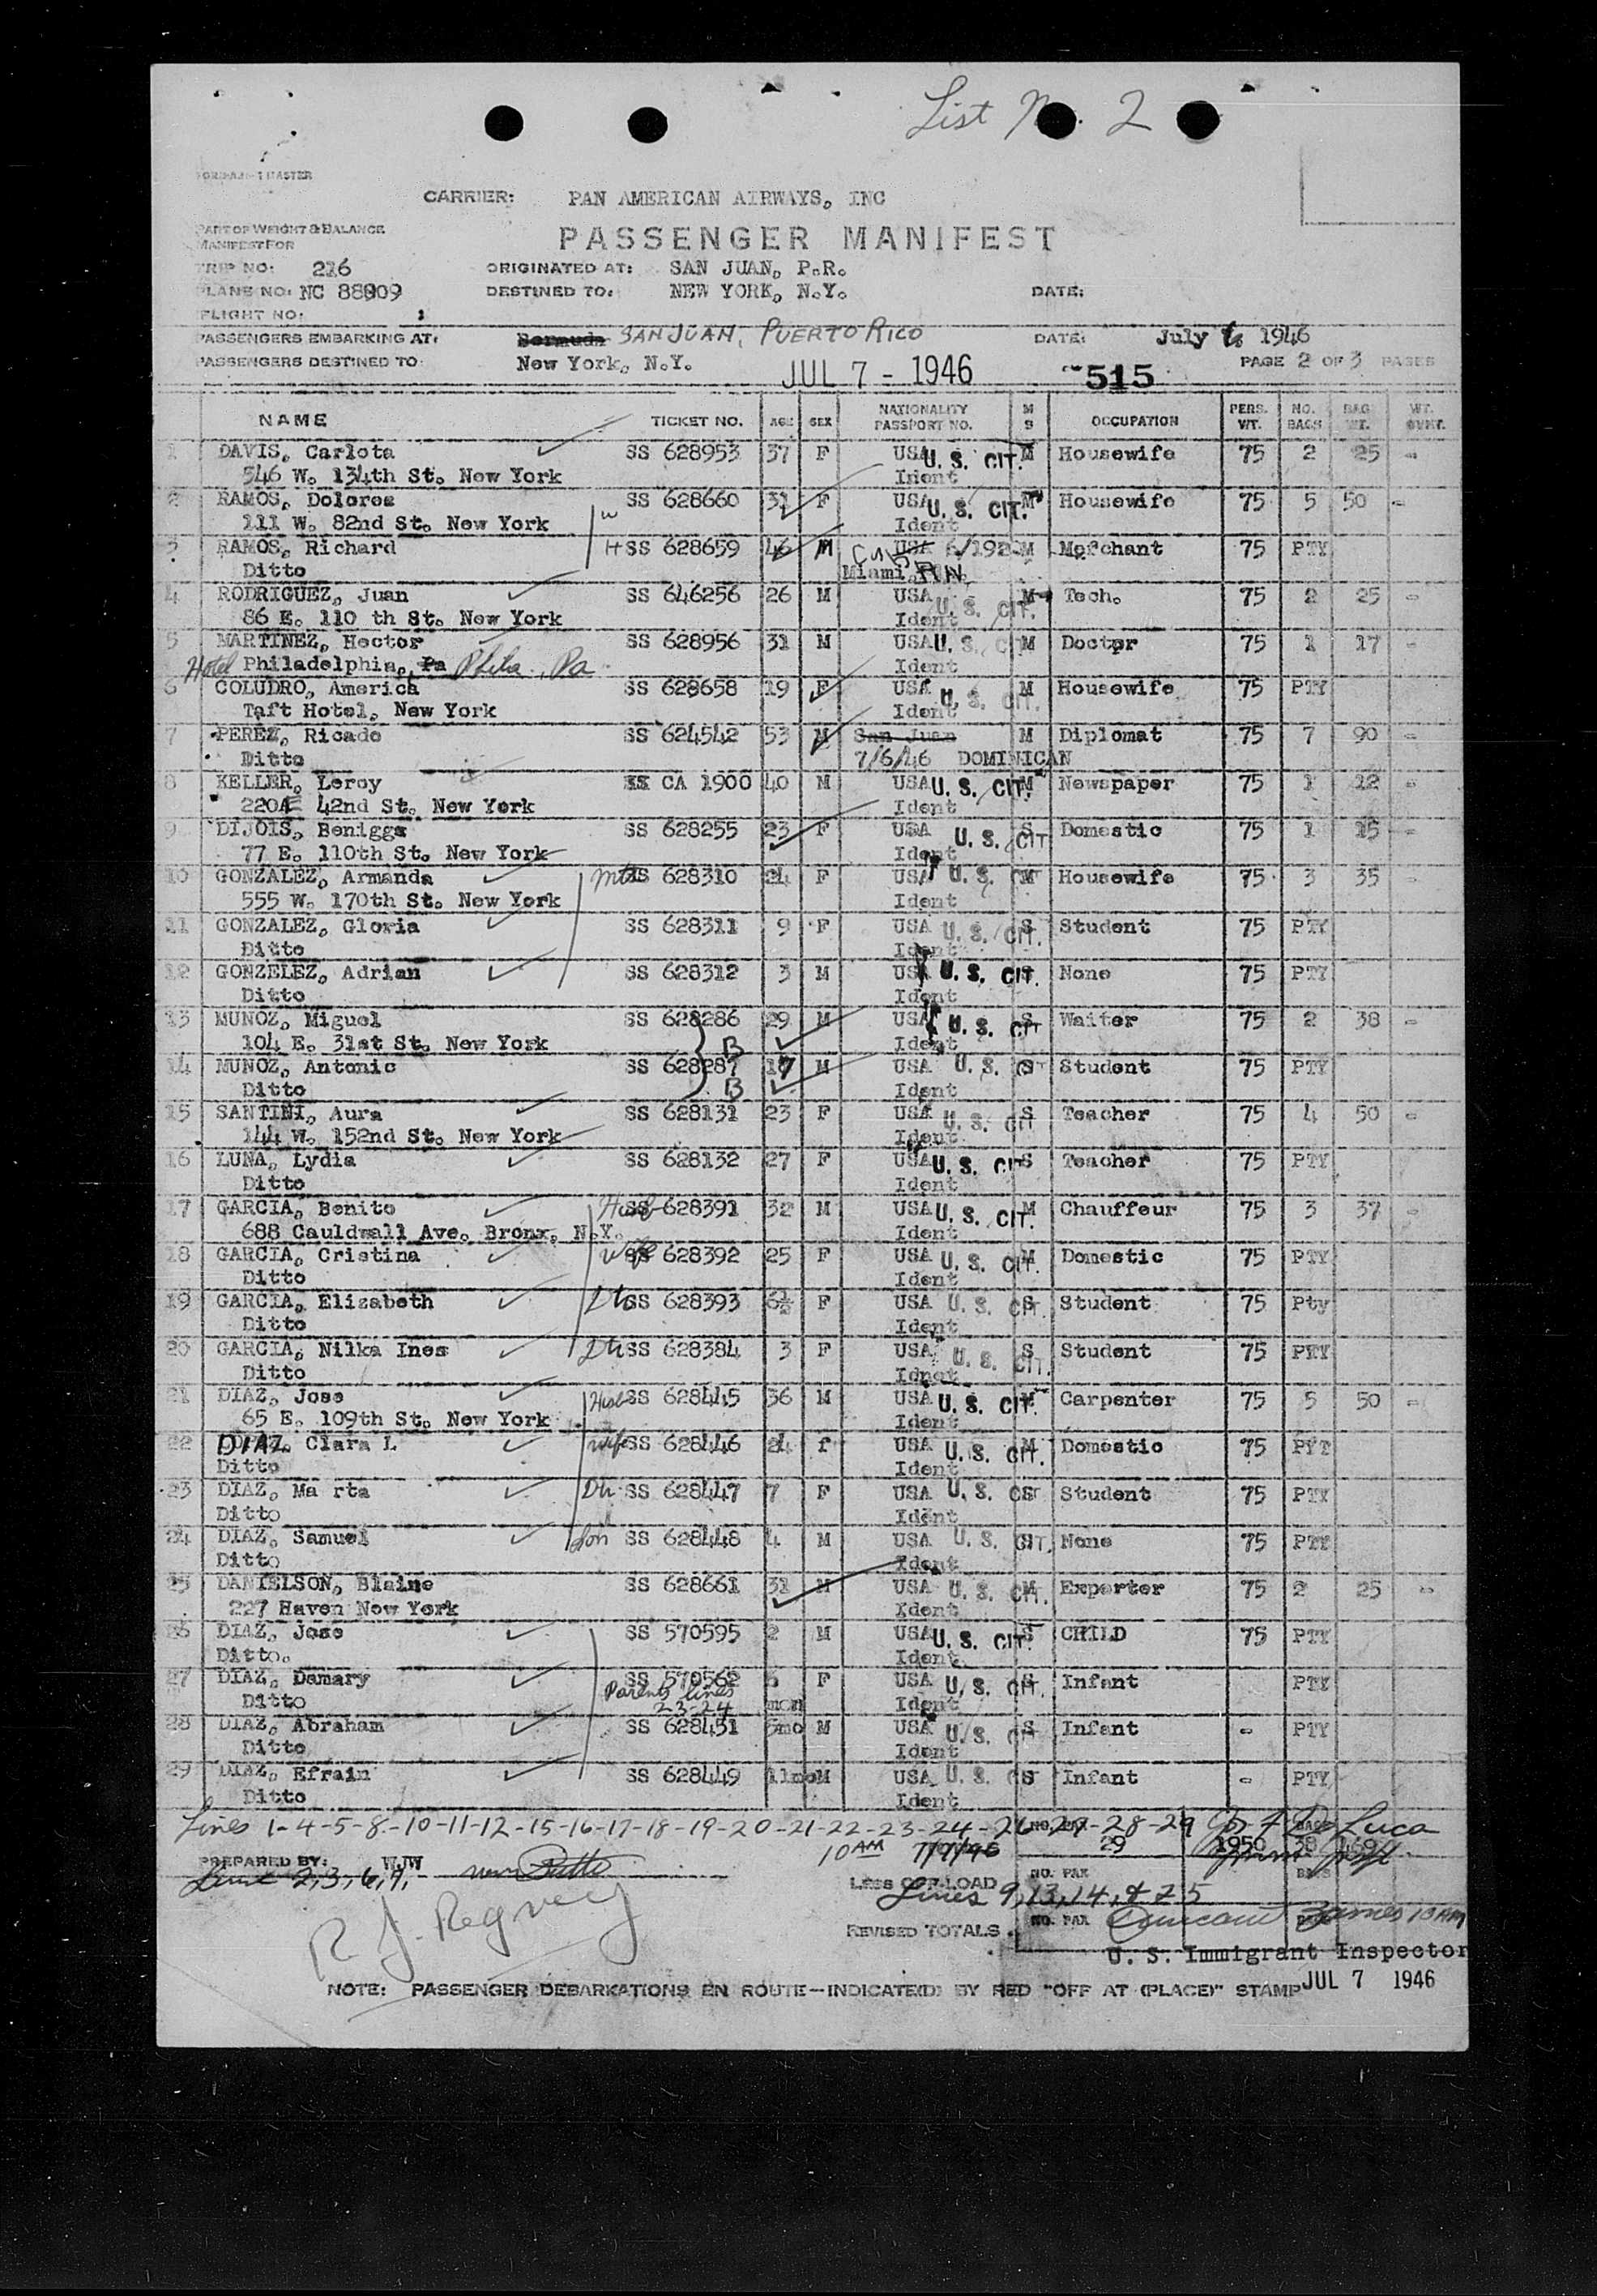 List No. 2
CARRIER: PAN AMERICAN AIRWAYS, INC
PART OF WEIGHT & BALANCE
MANIFEST FOR
PASSENGER MANIFEST
TRIP NO: 216 ORIGINATED AT: SAN JUAN, P.R.
PLANE NO: NC 88909 DESTINED TO: NEW YORK, N.Y. DATE:
FLIGHT NO: 1
PASSENGERS EMBARKING AT: Bermuda SAN JUAN, PUERTO RICO DATE: July 6, 1946
PASSENGERS DESTINED TO: New York, N.Y. JUL 7 - 1946 515 PAGE 2 OF 3 PAGES
NAME TICKET NO. AGE SEX NATIONALITY PASSPORT NO. M S OCCUPATION PERS. WT. NO. BAGS BAG. WT. WT. OVWT.
1 DAVIS, Carlota SS 628953 37 F USA U. S. CIT. M Housewife 75 2 25 -
546 W. 134th St. New York Ident
2 RAMOS, Dolores SS 628660 31 F USA U. S. CIT. M Housewife 75 5 50 -
111 W. 82nd St. New York W Ident
3 RAMOS, Richard H SS 628659 46 M USA M Merchant 75 PTY
Ditto Miami
4 RODRIGUEZ, Juan SS 646256 26 M USA U. S. CIT. M Tech. 75 2 25 -
86 E. 110 th St. New York Ident
5 MARTINEZ, Hector SS 628956 31 M USA U. S. M Doctor 75 1 17 -
Hotel Philadelphia, Pa Phila., Pa Ident
6 COLUDRO, America SS 628658 19 F USA U. S. CIT. M Housewife 75 PTY
Taft Hotel, New York Ident
7 PEREZ, Ricado SS 624542 53 M San Juan M Diplomat 75 7 90 -
Ditto 7/6/46 DOMINICAN
8 KELLER, Leroy CA 1900 40 M USA U. S. CIT. M Newspaper 75 1 12 -
220 E 42nd St. New York Ident
9 DIJOIS, Benigga SS 628255 23 F USA U. S. CIT S Domestic 75 1 15 -
77 E. 110th St. New York Ident
10 GONZALEZ, Armanda SS 628310 24 F USA U. S. M Housewife 75 3 35 -
555 W. 170th St. New York Ident
11 GONZALEZ, Gloria SS 628311 9 F USA U. S. CIT. S Student 75 PTY
Ditto Ident
12 GONZELEZ, Adrian SS 628312 3 M USA U. S. CIT. None 75 PTY
Ditto Ident
13 MUNOZ, Miguel SS 628286 29 M USA U. S. CIT S Waiter 75 2 38 -
104 E. 31st St. New York B Ident
14 MUNOZ, Antonio SS 628287 17 M USA U. S. S Student 75 PTY
Ditto B Ident
15 SANTINI, Aura SS 628131 23 F USA U. S. CIT S Teacher 75 4 50 -
144 W. 152nd St. New York Ident
16 LUNA, Lydia SS 628132 27 F USA U. S. CIT S Teacher 75 PTY
Ditto Ident
17 GARCIA, Benito Husb SS 628391 32 M USA U. S. CIT. M Chauffeur 75 3 37 -
688 Cauldwall Ave. Bronx, N.Y. Ident
18 GARCIA, Cristina wife SS 628392 25 F USA U. S. CIT. M Domestic 75 PTY
Ditto Ident
19 GARCIA, Elizabeth Dtr SS 628393 6½ F USA U. S. CIT. S Student 75 Pty
Ditto Ident
20 GARCIA, Nilka Ines Dtr SS 628384 3 F USA U. S. CIT. S Student 75 PTY
Ditto Idnet
21 DIAZ, Jose Husb SS 628445 36 M USA U. S. CIT. M Carpenter 75 5 50 -
65 E. 109th St. New York Ident
22 DIAZ, Clara L wife SS 628446 24 f USA U. S. CIT. M Domestic 75 PTY
Ditto Ident
23 DIAZ, Ma rta Dtr SS 628447 7 F USA U. S. S Student 75 PTY
Ditto Ident
24 DIAZ, Samuel Son SS 628448 4 M USA U. S. CIT. None 75 PTY
Ditto Ident
25 DANIELSON, Blaine SS 628661 31 M USA U. S. CIT. M Exporter 75 2 25 -
227 Haven New York Ident
26 DIAZ, Jose SS 570595 2 M USA U. S. CIT. S CHILD 75 PTY
Ditto. Ident
27 DIAZ, Damary SS 570562 F USA U. S. CIT. S Infant PTY
Ditto Parents lines 23-24 mon Ident
28 DIAZ, Abraham SS 628451 5mo M USA U. S. CIT S Infant - PTY
Ditto Ident
29 DIAZ, Efrain SS 628449 11mo M USA U. S. S Infant - PTY
Ditto Ident
Lines 1-4-5-8-10-11-12-15-16-17-18-19-20-21-22-23-24-26-27-28-29
29 1950 38 469
10 AM 7/7/46
PREPARED BY: WJW
Line 2,3,6,7,
LESS OFF-LOAD NO. PAX
Lines 9,13,14,& 25
R. J. Regney
REVISED TOTALS NO. PAX James 10 AM
U. S. Immigrant Inspector
NOTE: PASSENGER DEBARKATIONS EN ROUTE-INDICATE(D) BY RED "OFF AT (PLACE)" STAMP JUL 7 1946